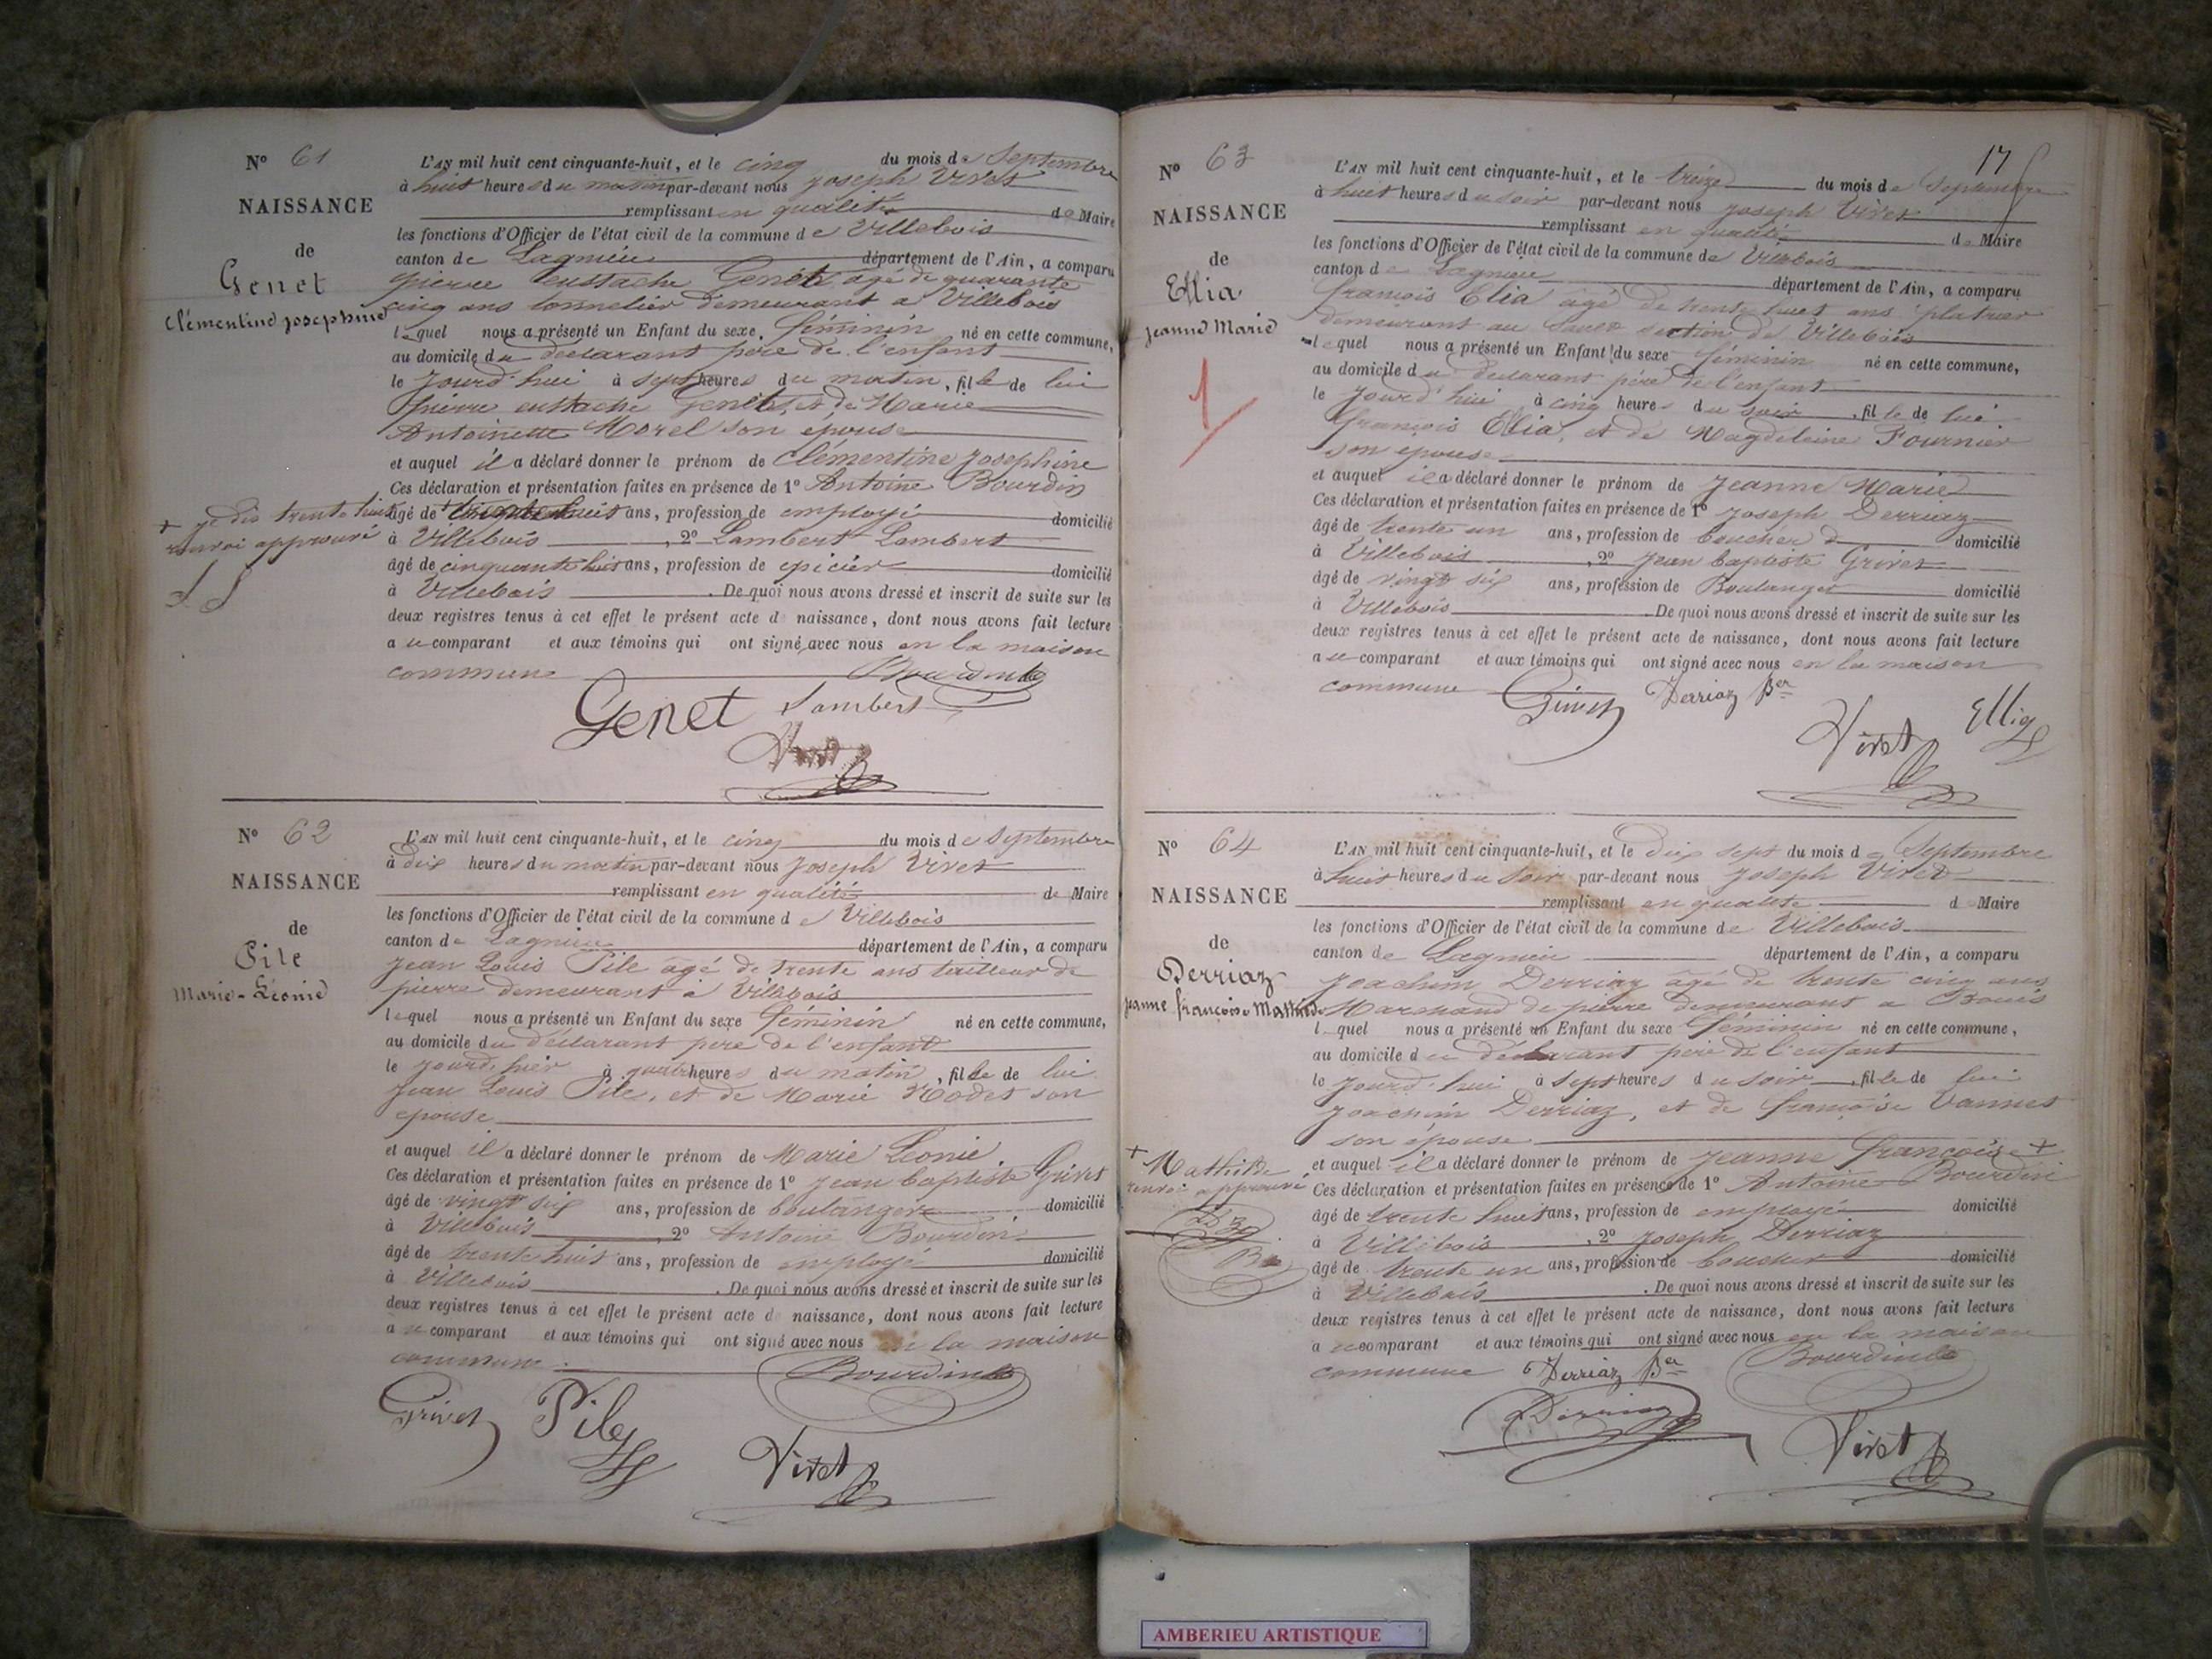 N° 61
NAISSANCE
de
Genet
Clémentine Josephine
L'AN mil huit cent cinquante-huit, et le cinq du mois de Septembre
à huit heures du matin par-devant nous Joseph Vivet
remplissant en qualité de Maire
les fonctions d'Officier de l'état civil de la commune de Villebois
canton de Lagnieu département de l'Ain, a comparu
pierre eustache Genet âgé de quarante
cinq ans tonnelier demeurant a Villebois
lequel nous a présenté un Enfant du sexe féminin né en cette commune,
au domicile du déclarant père de l'enfant
le jourd'hui à sept heures du matin, fille de lui
pierre eustache Genet, et de Marie
Antoinette Morel son épouse
et auquel il a déclaré donner le prénom de Clémentine Josephine
Ces déclaration et présentation faites en présence de 1° Antoine Bourdin
âgé de + ans, profession de employé domicilié
+ je dis trente huit
renvoi approuvé
à Villebois, 2° Lambert Lambert
âgé de cinquante huit ans, profession de epicier domicilié
à Villebois. De quoi nous avons dressé et inscrit de suite sur les
deux registres tenus à cet effet le présent acte de naissance, dont nous avons fait lecture
au comparant et aux témoins qui ont signé avec nous en la maison
commune
Bourdin
Genet Lambert
Vivet
N° 62
NAISSANCE
de
Pile
Marie-Léonie
L'AN mil huit cent cinquante-huit, et le cinq du mois de Septembre
à dix heures du matin par-devant nous Joseph Vivet
remplissant en qualité de Maire
les fonctions d'Officier de l'état civil de la commune de Villebois
canton de Lagnieu département de l'Ain, a comparu
Jean Louis Pile âgé de trente ans tailleur de
pierre demeurant à Villebois
lequel nous a présenté un Enfant du sexe féminin né en cette commune,
au domicile du déclarant pere de l'enfant
le jourd'hier à quatre heures du matin, fille de lui
Jean Louis Pile, et de Marie Rodet son
epouse
et auquel il a déclaré donner le prénom de Marie Leonie
Ces déclaration et présentation faites en présence de 1° Jean baptiste Grivet
âgé de vingt six ans, profession de boulanger domicilié
à Villebois, 2° Antoine Bourdin
âgé de trente huit ans, profession de employé domicilié
à Villebois. De quoi nous avons dressé et inscrit de suite sur les
deux registres tenus à cet effet le présent acte de naissance, dont nous avons fait lecture
au comparant et aux témoins qui ont signé avec nous en la maison
commune
Bourdin
Grivet Pile
Vivet
17
N° 63
NAISSANCE
de
Ellia
Jeanne Marie
1
L'AN mil huit cent cinquante-huit, et le treize du mois de Septembre
à huit heures du soir par-devant nous Joseph Vivet
remplissant en qualité de Maire
les fonctions d'Officier de l'état civil de la commune de Villebois
canton de Lagnieu département de l'Ain, a comparu
françois Elia âgé de trente huit ans platrier
demeurant au Sault section de Villebois
lequel nous a présenté un Enfant du sexe féminin né en cette commune,
au domicile du déclarant père de l'enfant
le jourd'hui à cinq heures du soir, fille de lui
françois Elia, et de Magdeleine Fournier
son épouse
et auquel il a déclaré donner le prénom de Jeanne Marie
Ces déclaration et présentation faites en présence de 1° Joseph Derriaz
âgé de trente un ans, profession de boucher domicilié
à Villebois, 2° Jean baptiste Grivet
âgé de vingt six ans, profession de Boulanger domicilié
à Villebois. De quoi nous avons dressé et inscrit de suite sur les
deux registres tenus à cet effet le présent acte de naissance, dont nous avons fait lecture
au comparant et aux témoins qui ont signé avec nous en la maison
commune
Grivet Derriaz Ber
Vivet Ellia
N° 64
NAISSANCE
de
Derriaz
Jeanne françoise Mathilde
L'AN mil huit cent cinquante-huit, et le dix sept du mois de Septembre
à huit heures du soir par-devant nous Joseph Vivet
remplissant en qualité d Maire
les fonctions d'Officier de l'état civil de la commune de Villebois
canton de Lagnieu département de l'Ain, a comparu
Joachim Derriaz âgé de trente cinq ans
Marchand de pierre demeurant a Bouis
lequel nous a présenté un Enfant du sexe féminin né en cette commune,
au domicile du déclarant père de l'enfant
le jourd'hui à sept heures du soir, fille de lui
Joachim Derriaz, et de françoise Vannet
son épouse
et auquel il a déclaré donner le prénom de Jeanne françoise +
+ Mathilde
renvoi approuvé
Ces déclaration et présentation faites en présence de 1° Antoine Bourdin
âgé de trente huit ans, profession de employé domicilié
à Villebois, 2° Joseph Derriaz
âgé de trente un ans, profession de boucher domicilié
à Villebois. De quoi nous avons dressé et inscrit de suite sur les
deux registres tenus à cet effet le présent acte de naissance, dont nous avons fait lecture
au comparant et aux témoins qui ont signé avec nous en la maison
commune Derriaz Ber Bourdin
Derriaz
Vivet
AMBERIEU ARTISTIQUE